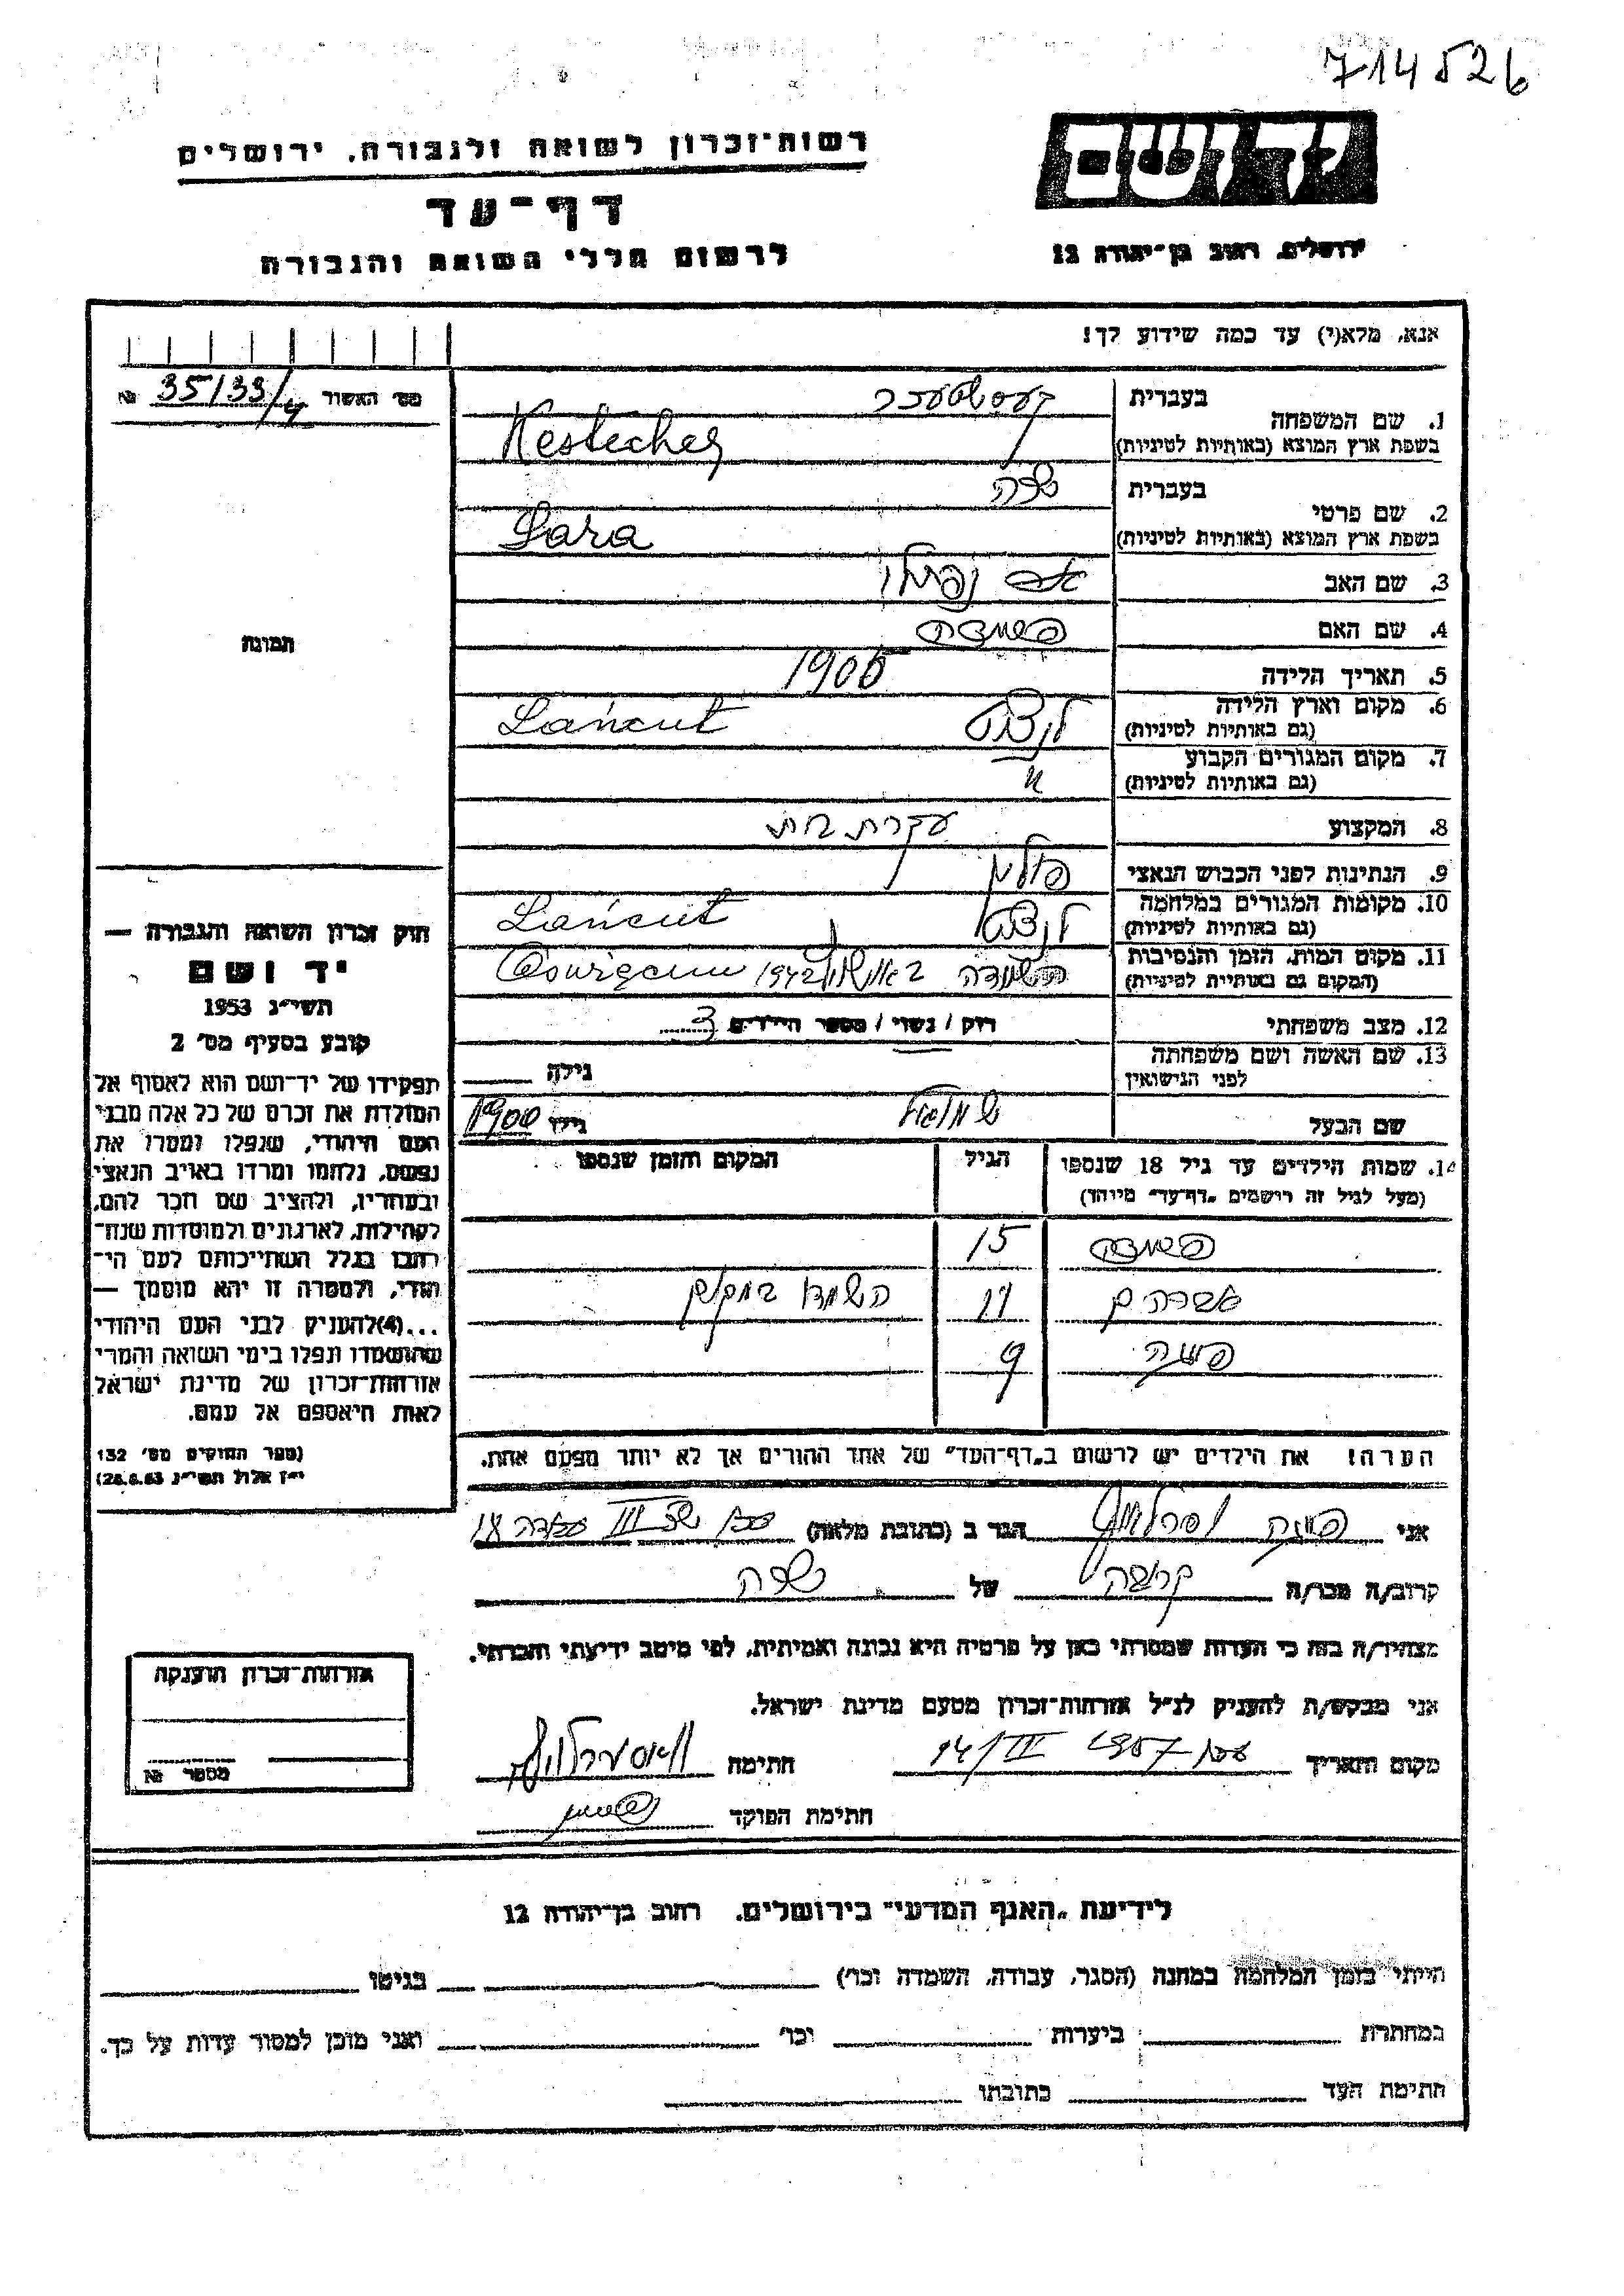 714526
רשות־זכרון לשואה ולגבורה, ירושלים
דף־עד
לרשום חללי השואה והגבורה
יד ושם
ירושלים, רחוב בן־יהודה 12
אנא, מלא(י) עד כמה שידוע לך!
מס' האשור 35/33/4 №
תמונה
1. שם המשפחה
בעברית קעסטעכר
בשפת ארץ המוצא (באותיות לטיניות) Kestecher
2. שם פרטי
בעברית שרה
בשפת ארץ המוצא (באותיות לטיניות) Sara
3. שם האב נפתלי
4. שם האם
5. תאריך הלידה 1905
6. מקום וארץ הלידה (גם באותיות לטיניות) לנצוט Łańcut
7. מקום המגורים הקבוע (גם באותיות לטיניות) "
8. המקצוע עקרת בית
9. הנתינות לפני הכבוש הנאצי פולין
10. מקומות המגורים במלחמה (גם באותיות לטיניות) לנצוט Łańcut
11. מקום המות, הזמן והנסיבות (המקום גם באותיות לטיניות) הושמדה 1942
12. מצב משפחתי רווק / נשוי / מספר הילדים 3
13. שם האשה ושם משפחתה לפני הנישואין גילה
שם הבעל שמואל גילו 1900
14. שמות הילדים עד גיל 18 שנספו הגיל המקום והזמן שנספו
(מעל לגיל זה רישמים „דף־עד” מיוחד)
15
אברהם 11
9
הערה! את הילדים יש לרשום ב„דף־העד” של אחד ההורים אך לא יותר מפעם אחת.
חוק זכרון השואה והגבורה —
יד ושם
תשי״ג 1953
קובע בסעיף מס' 2
תפקידו של יד־ושם הוא לאסוף אל
המולדת את זכרם של כל אלה מבני
העם היהודי, שנפלו ומסרו את
נפשם, נלחמו ומרדו באויב הנאצי
ובעוזריו, ולהציב שם וזכר להם,
לקהילות, לארגונים ולמוסדות שנח־
רבו בגלל השתייכותם לעם הי־
הודי, ולמטרה זו יהא מוסמך —
...(4)להעניק לבני העם היהודי
שהושמדו ונפלו בימי השואה והמרי
אזרחות־זכרון של מדינת ישראל
לאות היאספם אל עמם.
(ספר החוקים מס' 132
י״ז אלול תשי״ג 28.8.53)
אני הגר ב (כתובת מלאה)
קרוב/ה מכר/ה קרובה של שרה
מצהיר/ה בזה כי העדות שמסרתי כאן על פרטיה היא נכונה ואמיתית, לפי מיטב ידיעתי והכרתי.
אני מבקש/ת להעניק לנ״ל אזרחות־זכרון מטעם מדינת ישראל.
מקום ותאריך 14/III 1957 חתימה
חתימת הפוקד
אזרחות־זכרון הוענקה
מספר №
לידיעת „האגף המדעי” בירושלים, רחוב בן־יהודה 12
הייתי בזמן המלחמה במחנה (הסגר, עבודה, השמדה וכו') בגיטו
במחתרת ביערות וכו' ואני מוכן למסור עדות על כך.
חתימת העד כתובתו